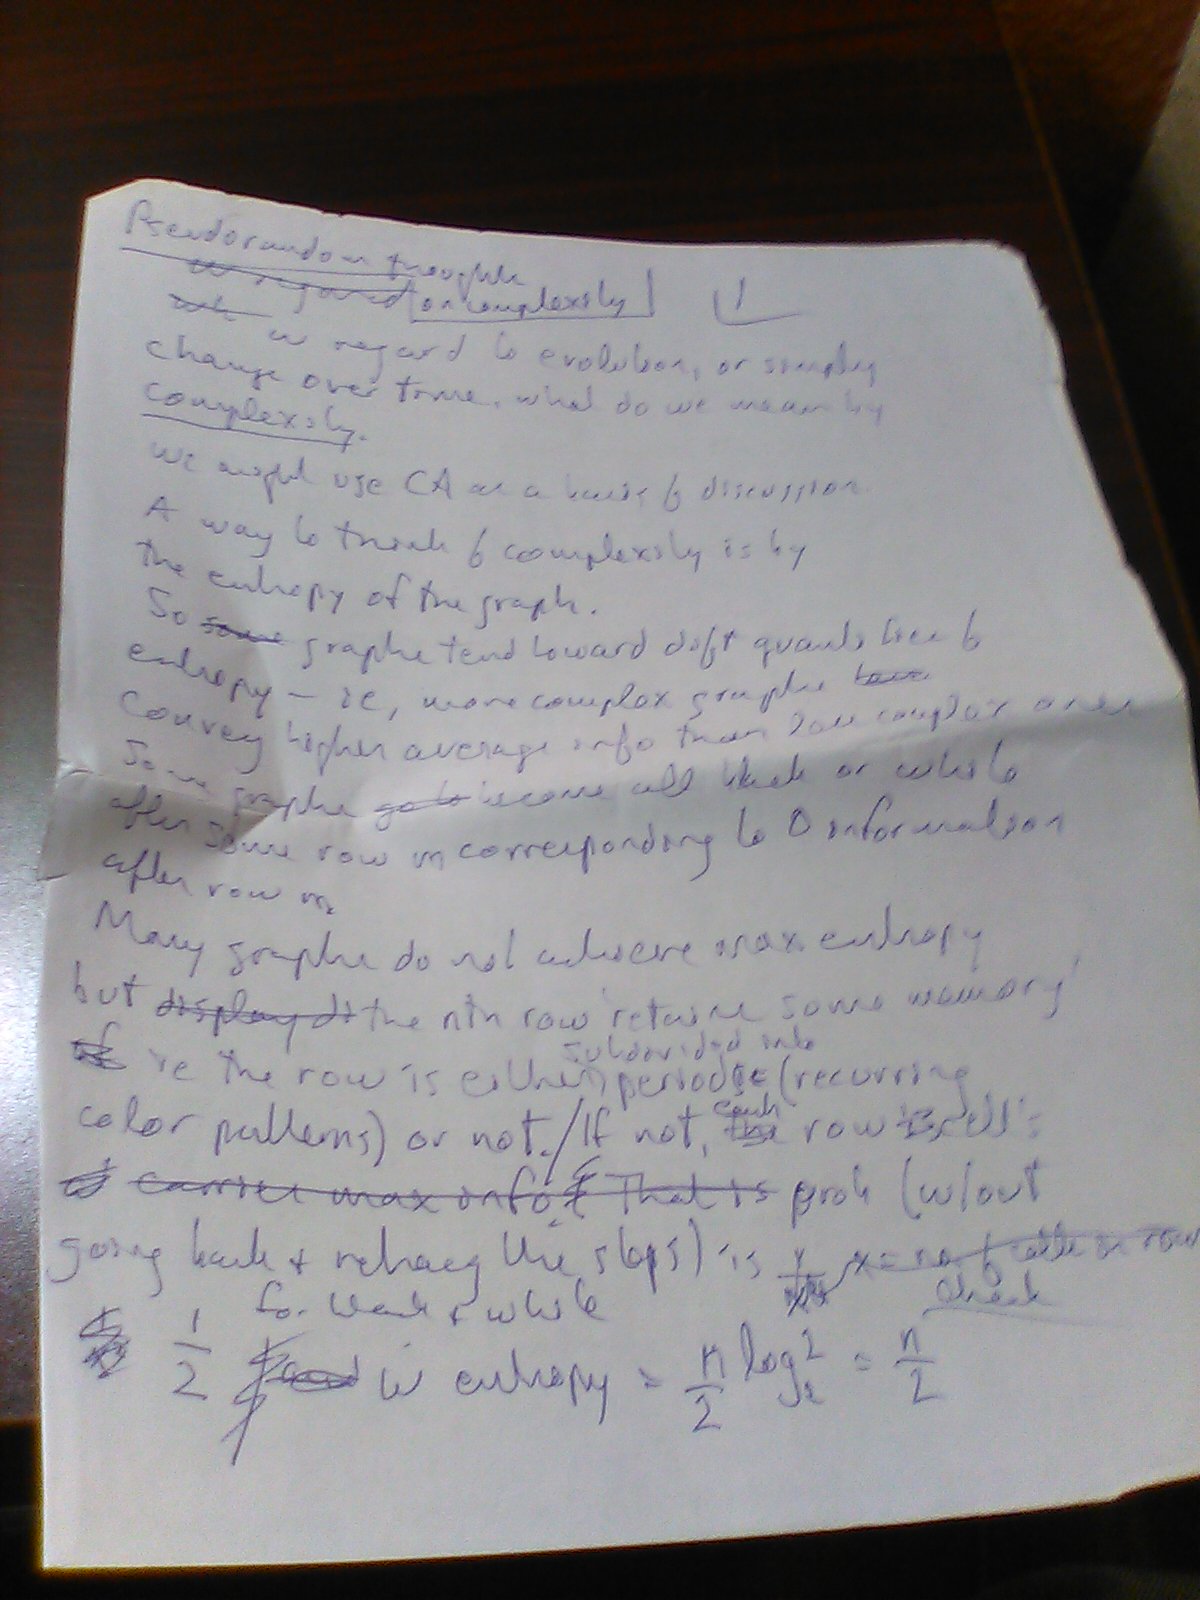 Pseudorandom thoughts
w regard on complexity 1
w regard to evolution, or simply
change over time, what do we mean by
complexity.
We might use CA as a basis of discussion.
A way to think of complexity is by
the entropy of the graph.
So some graphs tend toward difft quantities of
entropy — ie, more complex graphs have
convey higher average info than low complex ones
Some graphs go to become all black or white
after some row m corresponding to 0 information
after row m.
Many graphs do not achieve max entropy
but display di the nth row 'retains some memory'
ie the row is either subdivided into periods (recurring
color patterns) or not. / If not, each the row cell's
carries max info. That is prob (w/out
going back & retracing the steps) is x = no. of cells in row
for black & white check
1/2 w entropy = n/2 log₂ 2 = n/2